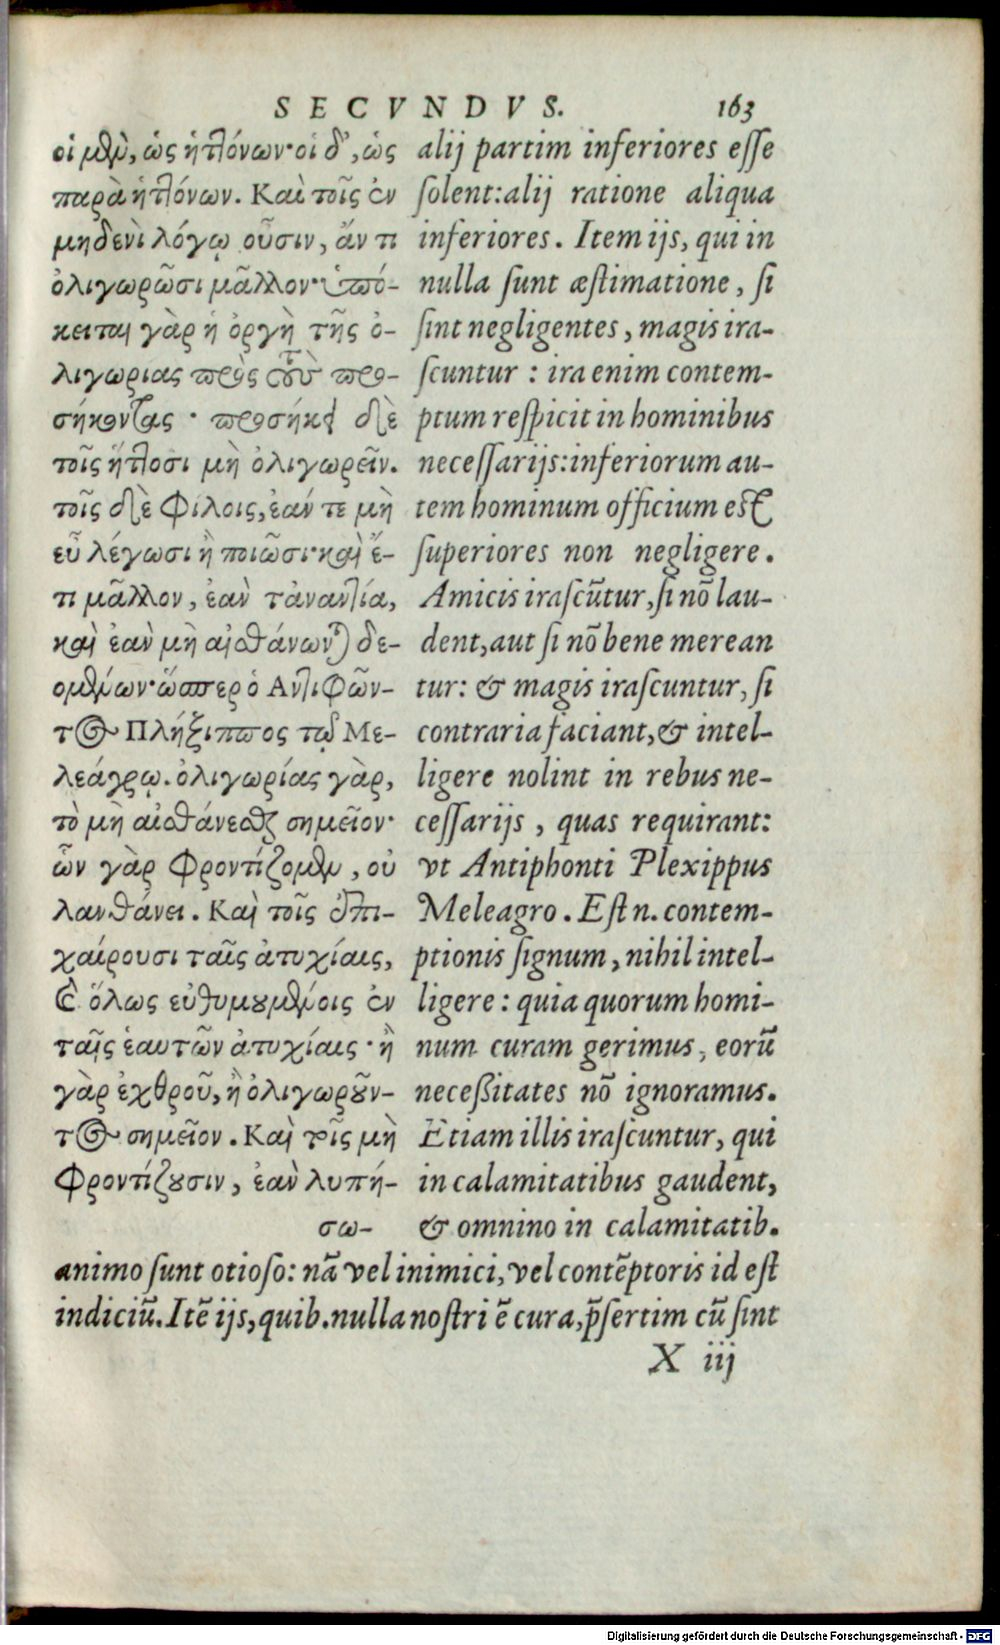 SECVNDVS. 163
οἱ μὲν, ὡς ἡττόνων· οἱ δ', ὡς
παρὰ ἡττόνων. Καὶ τοῖς ἐν
μηδενὶ λόγῳ οὖσιν, ἄν τι
ὀλιγωρῶσι μᾶλλον· ὑπό-
κειται γὰρ ἡ ὀργὴ τῆς ὀ-
λιγωριας πρὸς τοὺς προ-
σήκοντας · προσήκει δὲ
τοῖς ἥττοσι μὴ ὀλιγωρεῖν.
τοῖς δὲ Φίλοις, ἐάν τε μὴ
εὖ λέγωσι ἢ ποιῶσι· καὶ ἔ-
τι μᾶλλον, ἐὰν τἀναντία,
καὶ ἐὰν μὴ αἰσθάνωνται δε-
ομένων· ὥσπερ ὁ Αντιφῶν-
τος Πλήξιππος τῷ Με-
λεάγρῳ. ὀλιγωρίας γὰρ,
τὸ μὴ αἰσθάνεσθαι σημεῖον·
ὧν γὰρ Φροντίζομεν, οὐ
λανθάνει. Καὶ τοῖς ἐπι-
χαίρουσι ταῖς ἀτυχίαις,
καὶ ὅλως εὐθυμουμένοις ἐν
ταῖς ἑαυτῶν ἀτυχίαις · ἢ
γὰρ ἐχθροῦ, ἢ ὀλιγωροῦν-
τος σημεῖον. Καὶ τοῖς μὴ
Φροντίζουσιν, ἐὰν λυπή-
σω-
alij partim inferiores esse
solent: alij ratione aliqua
inferiores. Item ijs, qui in
nulla sunt æstimatione, si
sint negligentes, magis ira-
scuntur : ira enim contem-
ptum respicit in hominibus
necessarijs: inferiorum au-
tem hominum officium est
superiores non negligere.
Amicis irascũtur, si nõ lau-
dent, aut si nõ bene merean
tur: & magis irascuntur, si
contraria faciant, & intel-
ligere nolint in rebus ne-
cessarijs, quas requirant:
vt Antiphonti Plexippus
Meleagro. Est n. contem-
ptionis signum, nihil intel-
ligere: quia quorum homi-
num curam gerimus, eorũ
neceßitates nõ ignoramus.
Etiam illis irascuntur, qui
in calamitatibus gaudent,
& omnino in calamitatib.
animo sunt otioso: nã vel inimici, vel contẽptoris id est
indiciũ. Itẽ ijs, quib. nulla nostri ẽ cura, p̃sertim cũ sint
X iij
Digitalisierung gefördert durch die Deutsche Forschungsgemeinschaft - DFG